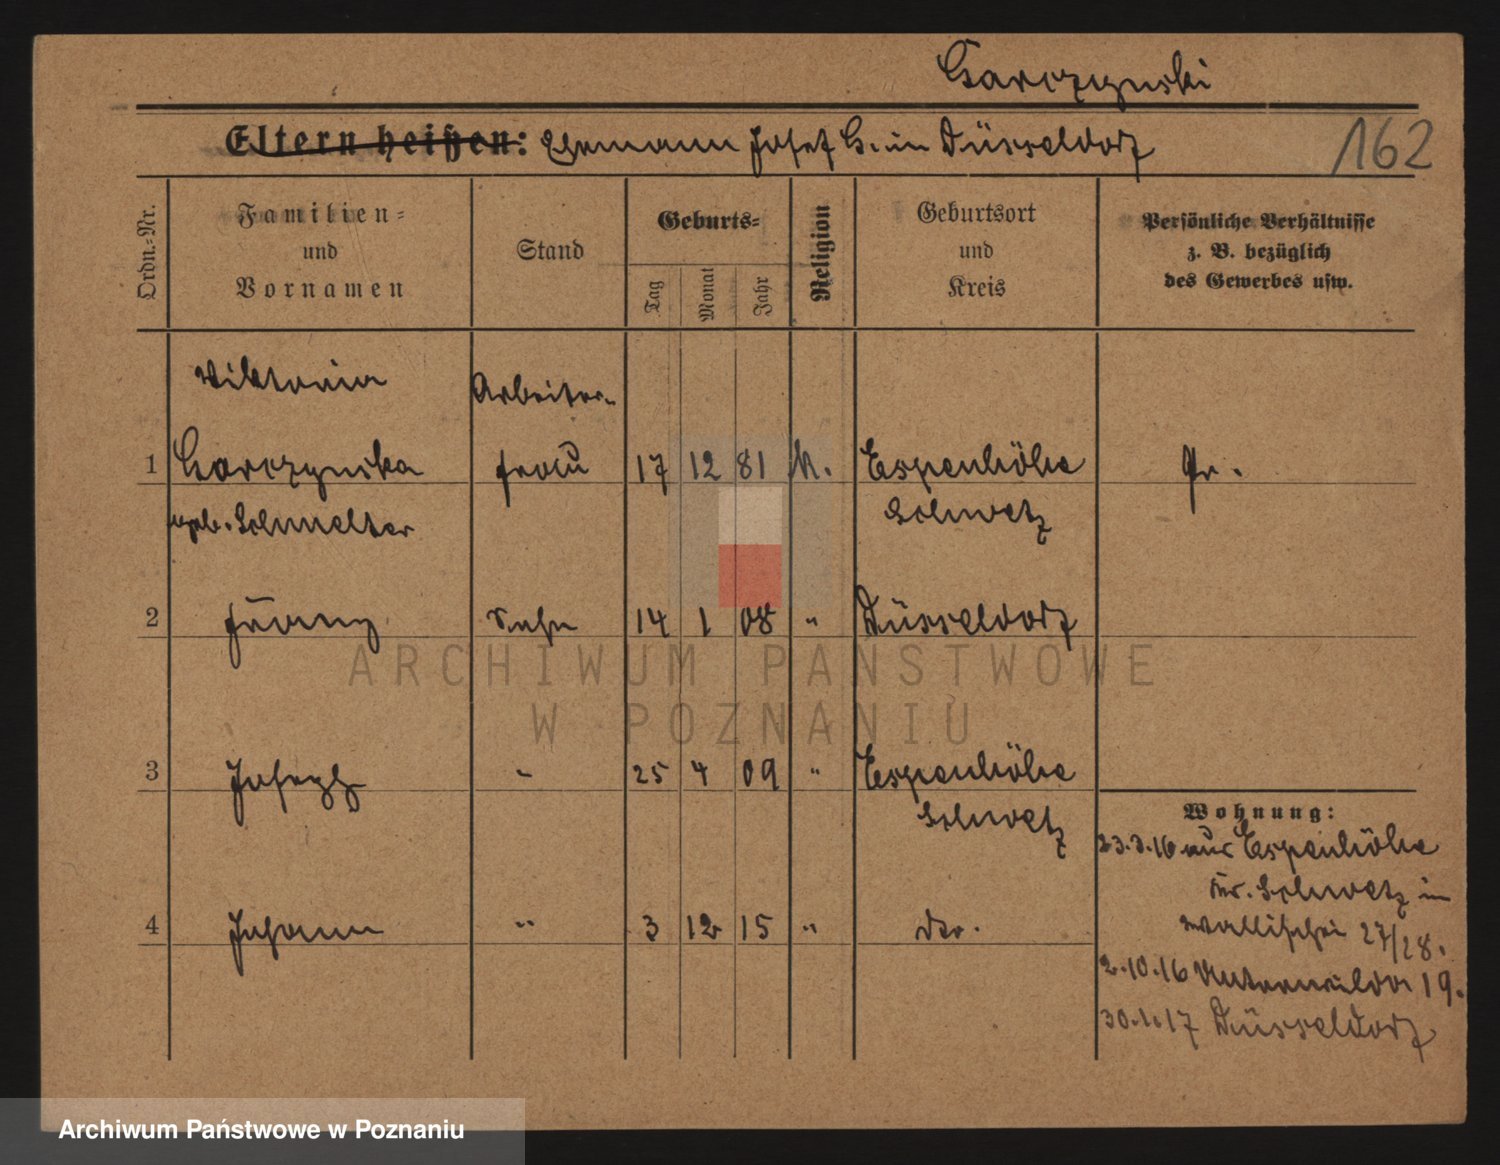 Garczynski
Eltern heißen: Ehemann Josef G. in Düsseldorf
162
Ordn.-Nr.
Familien-
und
Vornamen
Stand
Geburts-
Tag
Monat
Jahr
Religion
Geburtsort
und
Kreis
Persönliche Verhältnisse
z. B. bezüglich
des Gewerbes usw.
Viktoria Arbeiter-
1 Garczynska frau 17 12 81 k. Espenhöhe Pr.
geb. Schmelter Schwetz
2 Franz Sohn 14 1 08 " Düsseldorf
ARCHIWUM PANSTWOWE
W POZNANIU
3 Joseph " 25 4 09 " Espenhöhe
Schwetz
4 Johann " 3 12 15 " do.
Wohnung:
23.3.16 aus Espenhöhe
Kr. Schwetz in
Wallischei 27/28.
2.10.16 Unterwilda 19.
30.1.17 Düsseldorf
Archiwum Państwowe w Poznaniu